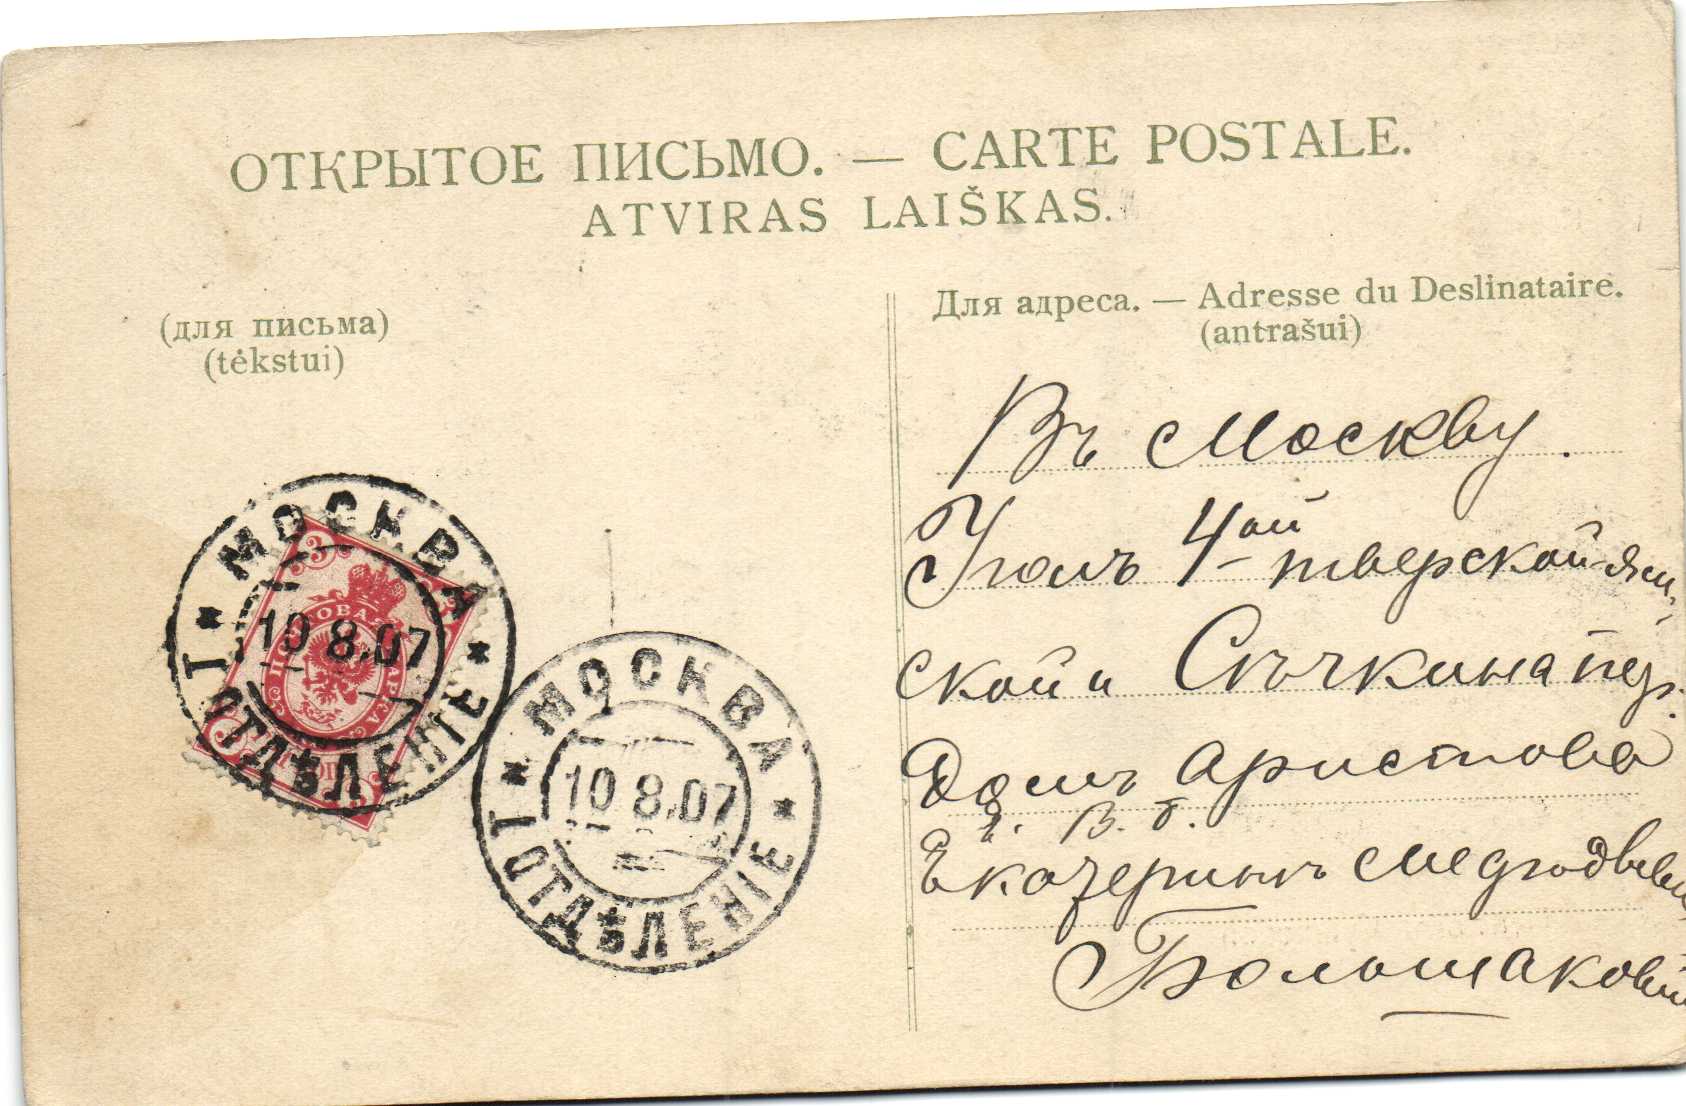 ОТКРЫТОЕ ПИСЬМО. — CARTE POSTALE.
ATVIRAS LAIŠKAS.
(для письма)
(tėkstui)
Для адреса. — Adresse du Deslinataire.
(antrašui)
Въ Москву.
Уголъ 4-ой тверской-ям,
ской и Сѣчкина пер.
Домъ Аристова
Е. В. Б.
Екатеринѣ
Большаковой
МОСКВА
10 8.07
1 ОТДѢЛЕНІЕ
МОСКВА
10 8.07
1 ОТДѢЛЕНІЕ
3
ПОЧТОВАЯ МАРКА